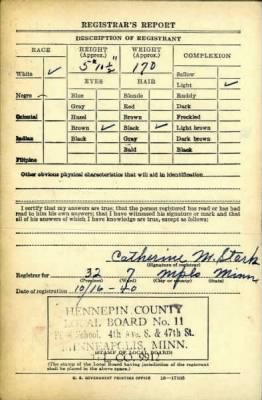 REGISTRAR'S REPORT
DESCRIPTION OF REGISTRANT
RACE HEIGHT (Approx.) WEIGHT (Approx.) COMPLEXION
5' 11½" 170
White ✓ Sallow
EYES HAIR Light ✓
Negro Blue Blonde Ruddy
Gray Red Dark
Oriental Hazel Brown Freckled
Brown ✓ Black ✓ Light brown
Indian Black Gray Dark brown
Bald Black
Filipino
Other obvious physical characteristics that will aid in identification
I certify that my answers are true; that the person registered has read or has had
read to him his own answers; that I have witnessed his signature or mark and that
all of his answers of which I have knowledge are true, except as follows:
Catherine M. Stark
(Signature of registrar)
Registrar for 32 7 Mpls Minn
(Precinct) (Ward) (City or county) (State)
Date of registration 10/16-40
HENNEPIN COUNTY
LOCAL BOARD No. 11
School, 4th Ave. S. & 47th St.
MINNEAPOLIS, MINN.
(STAMP OF LOCAL BOARD)
(The stamp of the Local Board having jurisdiction of the registrant
shall be placed in the above space.)
U. S. GOVERNMENT PRINTING OFFICE 16—17105